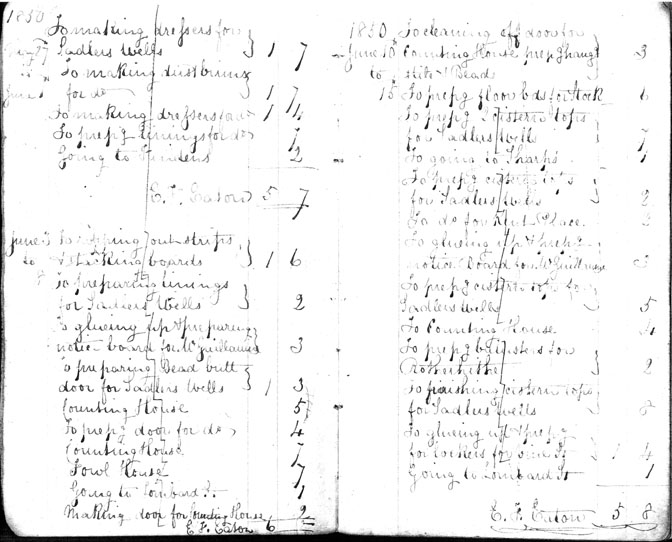 1850
To making dressers for
Sadlers Wells } 1 7
To making dust binns
for do } 1 7
To making dressers for 1 4
To prepg linings for do 7
Going to 2
E. F. Eaton 5 7
June 3 To ripping out strips
to & stacking boards } 1 6
8 To preparing linings
for Sadlers Wells } 2
To glueing up & preparing
notice board for W Guillaume 3
To preparing Bead butt
door for Sadlers Wells } 1 3
Counting House 5
To prepg door for do 4
Counting House 7
Fowl House 7
Going to Lombard St. 1
Making door for Counting House 2
E. F. Eaton 6
1850 To cleaning off door for
June 10 Counting House prepg
to & Beads } 3
15 To prepg floor bds for Stock 6
To prepg Cistern tops
for Sadlers Wells } 7
To going to Sharps 1
To prepg cistern tops
for Sadlers Wells } 2
To do for Place 3
To glueing up & prepg
notice board for W Guillaume 3
To prepg cistern top for
Sadlers Wells 5
To Counting House 4
To prepg balusters for
Rotherhithe } 2
To finishing cistern tops
for Sadlers Wells } 8
To glueing up & prepg
for lockers for St } 1 4
Going to Lombard St 1
E. F. Eaton 5 8